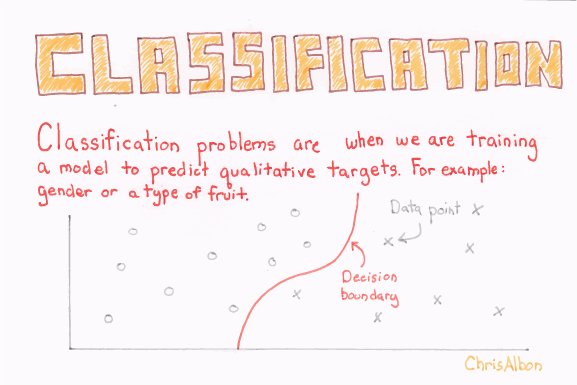 CLASSIFICATION
Classification problems are when we are training
a model to predict qualitative targets. For example:
gender or a type of fruit.
Data point x
Decision
boundary
ChrisAlbon